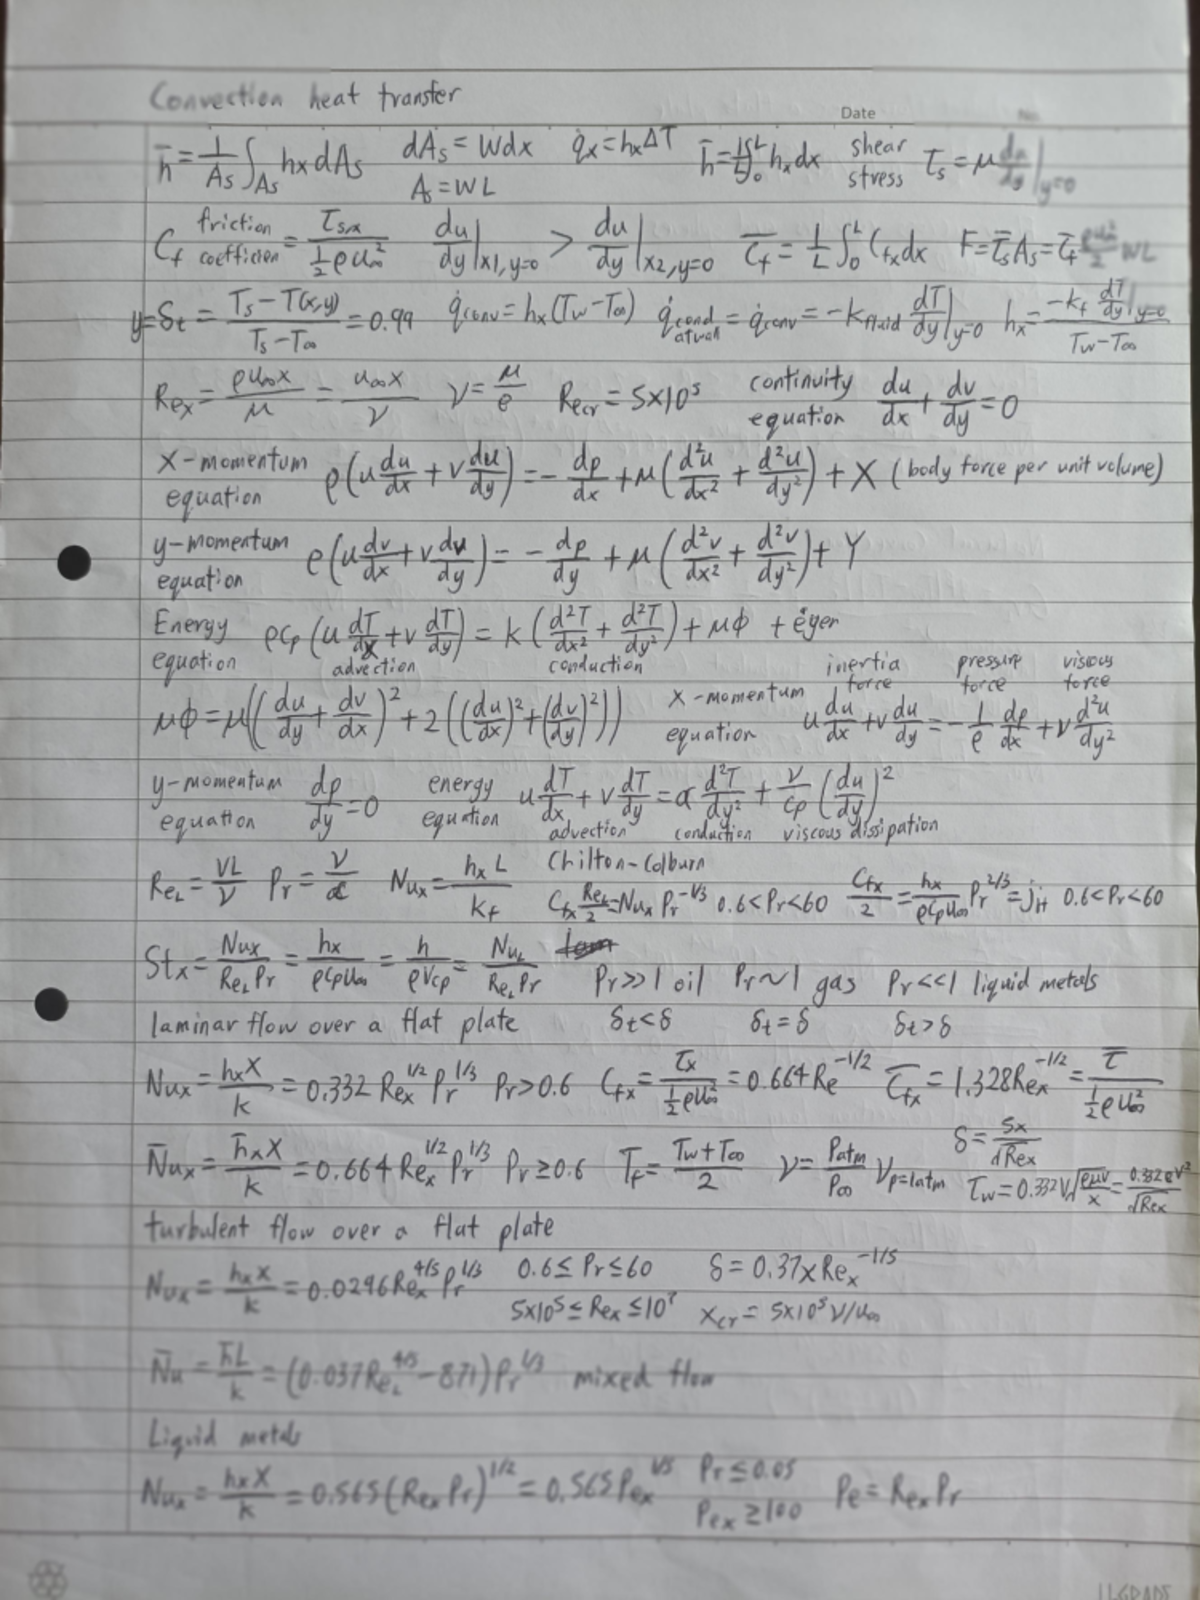 Convection heat transfer
Date No.
h̄ = 1/As ∫As hx dAs dAs = Wdx q̇x = hxΔT h̄ = 1/L ∫0^L hx dx shear τs = μ du/dy|y=0
As = WL stress
Cf friction coefficien = τs,x / (1/2 ρu∞²) du/dy|x1,y=0 > du/dy|x2,y=0 C̄f = 1/L ∫0^L Cfx dx F = τ̄s As = C̄f ρu∞²/2 WL
y=δt = (Ts − T(x,y))/(Ts − T∞) = 0.99 q̇conv = hx(Tw − T∞) q̇cond at wall = q̇conv = −kfluid dT/dy|y=0 hx = (−kf dT/dy|y=0)/(Tw − T∞)
Rex = ρu∞x/μ = u∞x/ν ν = μ/ρ Recr = 5×10⁵ continuity equation du/dx + dv/dy = 0
x-momentum equation ρ(u du/dx + v du/dy) = − dp/dx + μ(d²u/dx² + d²u/dy²) + X (body force per unit volume)
y-momentum equation ρ(u dv/dx + v dv/dy) = − dp/dy + μ(d²v/dx² + d²v/dy²) + Y
Energy equation ρcp(u dT/dx + v dT/dy) = k(d²T/dx² + d²T/dy²) + μφ + ėger
advection conduction inertia force pressure force viscous force
μφ = μ((du/dy + dv/dx)² + 2((du/dx)² + (dv/dy)²)) x-momentum equation u du/dx + v du/dy = −1/ρ dp/dx + ν d²u/dy²
y-momentum equation dp/dy = 0 energy equation u dT/dx + v dT/dy = α d²T/dy² + ν/cp (du/dy)²
advection conduction viscous dissipation
ReL = VL/ν Pr = ν/α Nux = hx L/kf Chilton-Colburn
Cfx ReL/2 = Nux Pr^−1/3 0.6<Pr<60 Cfx/2 = hx/(ρcpu∞) Pr^2/3 = jH 0.6<Pr<60
Stx = Nux/(ReL Pr) = hx/(ρcpu∞) = h/(ρVcp) = NuL/(ReL Pr) Pr>>1 oil Pr~1 gas Pr<<1 liquid metals
laminar flow over a flat plate δt<δ δt=δ δt>δ
Nux = hxX/k = 0.332 Rex^1/2 Pr^1/3 Pr>0.6 Cfx = τx/(1/2 ρu∞²) = 0.664Re^−1/2 C̄fx = 1.328Rex^−1/2 = τ̄/(1/2 ρu∞²)
N̄ux = h̄xX/k = 0.664 Rex^1/2 Pr^1/3 Pr≥0.6 Tf = (Tw+T∞)/2 ν = Patm/P∞ νp=1atm δ = 5x/√Rex
τw = 0.332V√(ρμV/x) = 0.332ρV²/√Rex
turbulent flow over a flat plate
Nux = hxX/k = 0.0296Rex^4/5 Pr^1/3 0.6 ≤ Pr ≤ 60 δ = 0.37xRex^−1/5
5×10⁵ ≤ Rex ≤ 10⁷ xcr = 5×10⁵ν/u∞
N̄u = h̄L/k = (0.037ReL^4/5 − 871)Pr^1/3 mixed flow
Liquid metals
Nux = hxX/k = 0.565(Rex Pr)^1/2 = 0.565Pex^1/5 Pr ≤ 0.05 Pe = Rex Pr
Pex ≥ 100